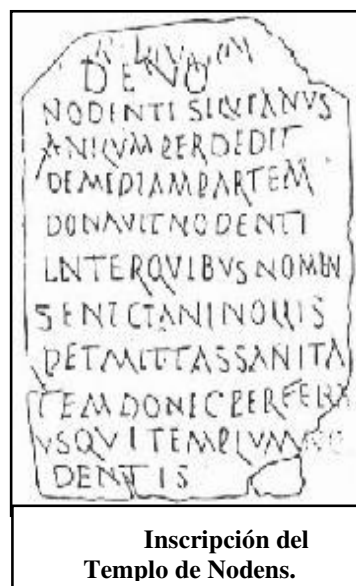 DEVO
NODENTI SILVIANVS
ANILVM PERDEDIT
DEMEDIAM PARTEM
DONAVIT NODENTI
INTER QVIBVS NOMEN
SENICIANI NOLLIS
PETMITTAS SANITA
TEM DONEC PERFERA
VSQVE TEMPLVM
DENTIS
Inscripción del
Templo de Nodens.